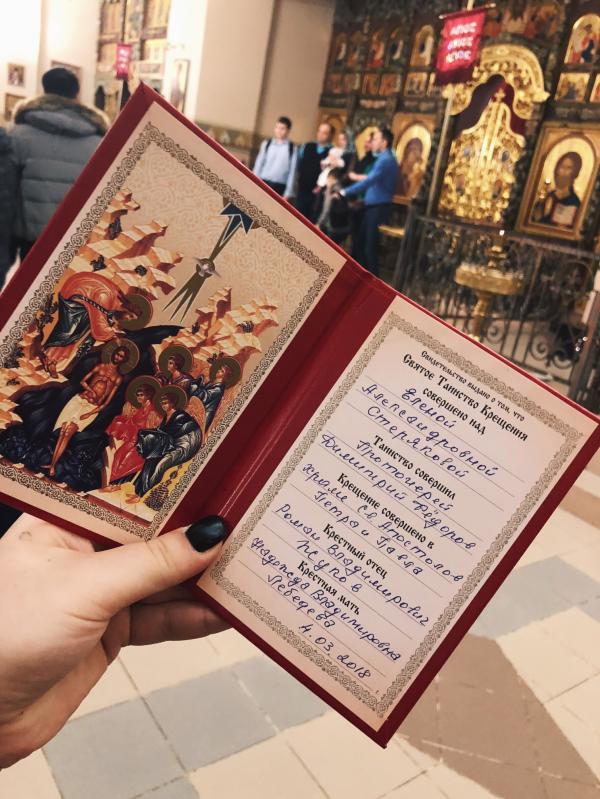 Свидетельство выдано о том, что
Святое Таинство Крещения
совершено над
Еленой
Александровной
Стеряковой
Таинство совершил
Протоиерей
Димитрий Федоров
Крещение совершено в
храме Св. Апостолов
Петра и Павла
Крестный отец
Роман Владимирович
Псунов
Крестная мать
Надежда Владимировна
Лебедева
4.03.2018